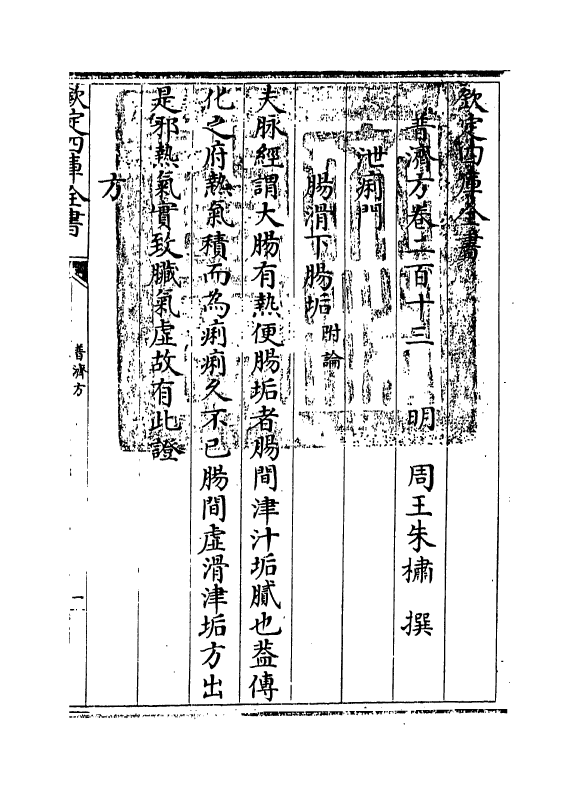 欽定四庫全書
普濟方卷二百十三　明　周王朱橚　撰
泄痢門
腸滑下腸垢附論
夫脉經謂大腸有熱便腸垢者腸間津汁垢膩也葢傳
化之府熱氣積而為痢痢久不已腸間虛滑津垢方出
是邪熱氣實致臟氣虛故有此證
方
欽定四庫全書
普濟方
一